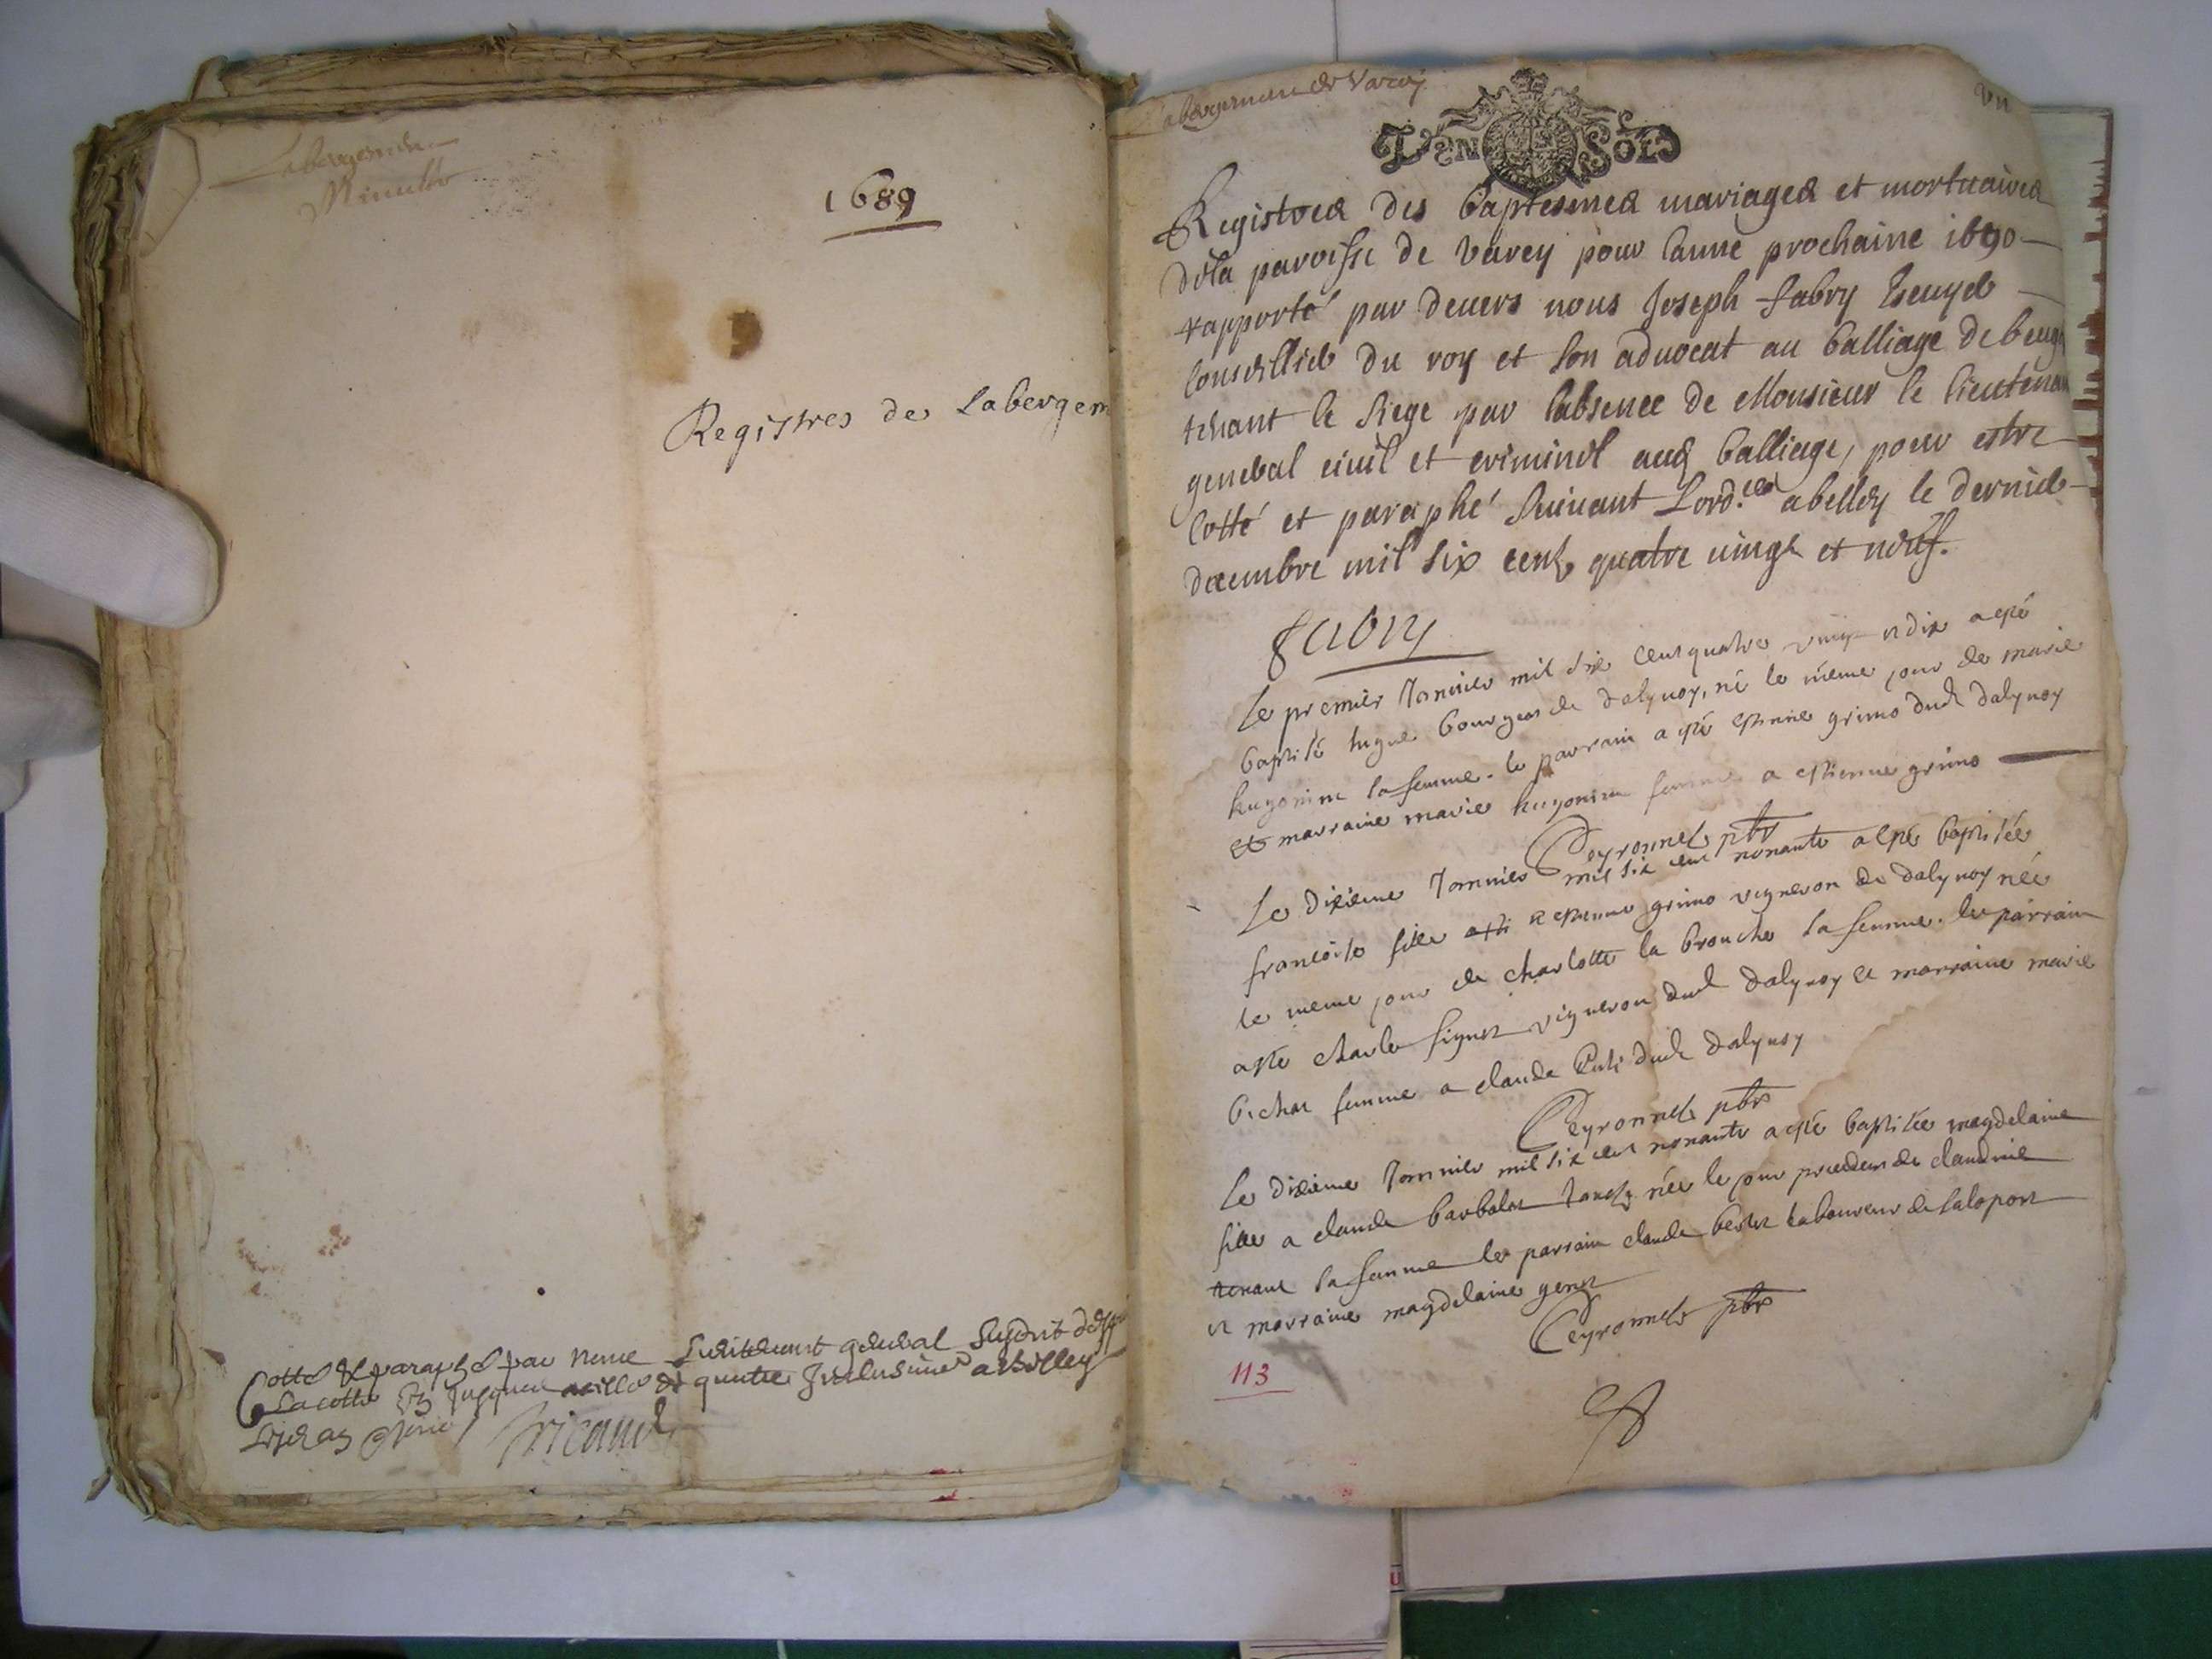 1689
Registres de Labergem
Cotté & paraphé par nous Lieutenant general
La cotte jusques a celle de quatre Inclusive a Belley
Labergement de Varey
VN SOL
un
Registres des baptesmes mariages et mortuaires
dela paroisse de varey pour lanne prochaine 1690
rapporté par devers nous Joseph fabry Escuyer
Conseillier du roy et son advocat au balliage de beug
tenant le siege par labsence de Monsieur le lieutenan
general civil et criminel aud balliage, pour estre
Cotté et paraphé suivant Lord.ce a belley le dernier
decembre mil six cent quatre vingt et neuf.
fabry
Le premier Janvier mil six cent quatre vingt et dix a esté
baptisé hugue bourgeois de dalyvoy, né le même jour de marie
hugonine sa femme. le parrain a esté estienne grimo dud dalyvoy
et marraine marie hugonine femme a estienne grimo
Peyronnet pbr
Le dixieme Janvier mil six cent nonante a esté baptisée
francoise fille a estienne grimo vigneron de dalyvoy née
le meme jour de charlotte la brouche sa femme. le parrain
a esté charle signet vigneron dud dalyvoy et marraine marie
bichat femme a claude dud dalyvoy
Peyronnet pbr
Le dixieme Janvier mil six cent nonante a esté baptisée magdelaine
fille a claude barbolat née le jour precedent de claudine
tenant sa femme le parrain claude laboureur de
et marraine magdelaine genet
Peyronnet pbr
113